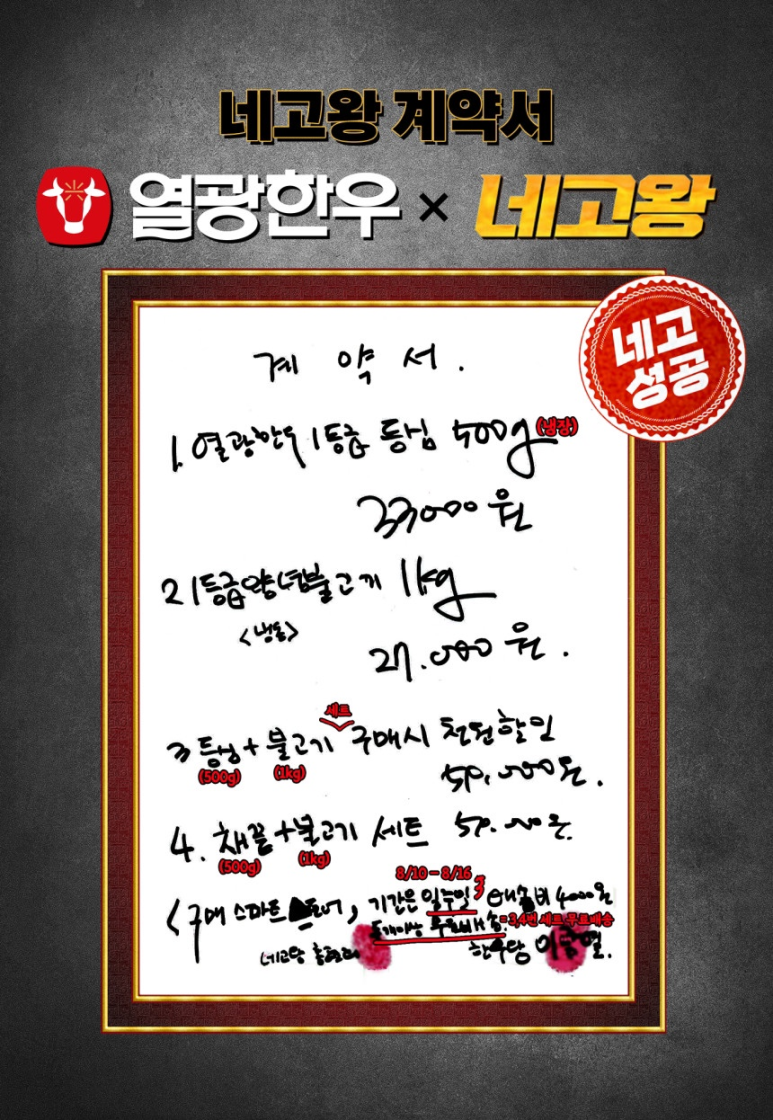 네고왕 계약서
열광한우 × 네고왕
네고
성공
계 약 서.
1. 열광한우 1등급 등심 500g (냉장)
33000원
2 1등급양념불고기 1kg
<냉동>
27.000원.
세트
3 등심+불고기 구매시 천원할인
(500g) (1kg)
59,000원.
4. 채끝+불고기 세트 59.000원.
(500g) (1kg)
8/10-8/16
<구매 스마트 스토어, 기간은 일주일, 배송비 4000원
두개이상 무료배송.=3,4번 세트 무료배송
네고왕 홍현희